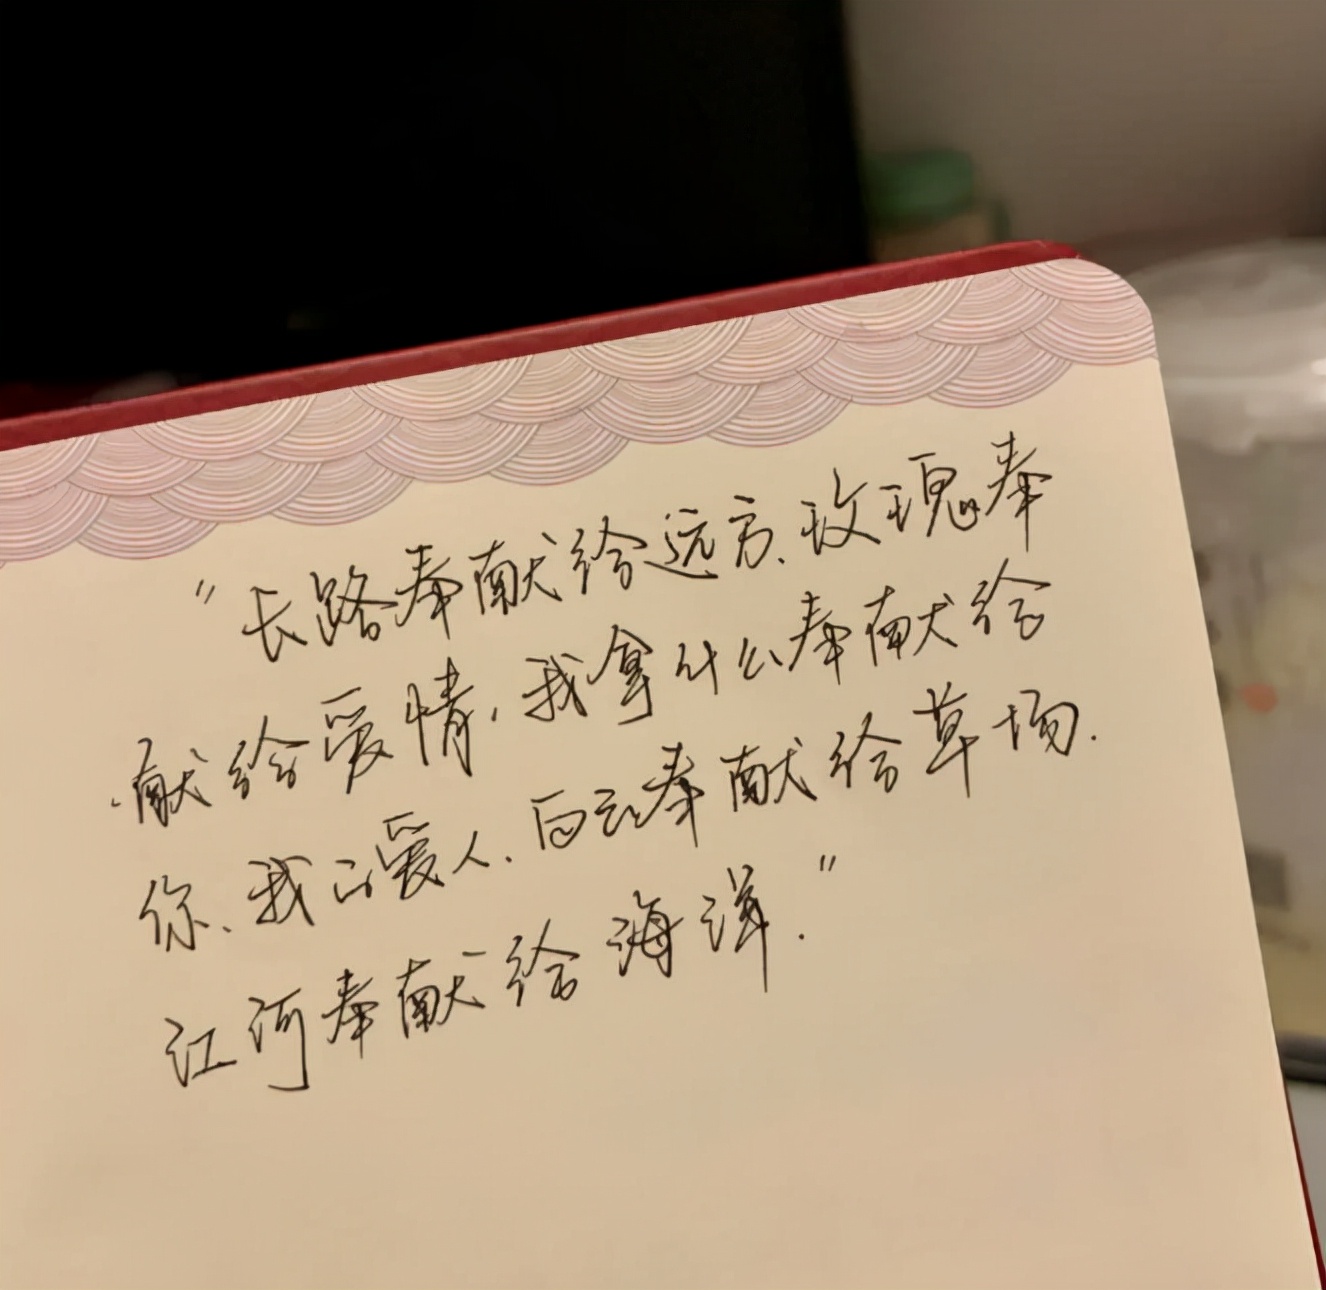 “长路奉献给远方、玫瑰奉
献给爱情,我拿什么奉献给
你、我的爱人.白云奉献给草场.
江河奉献给海洋.”